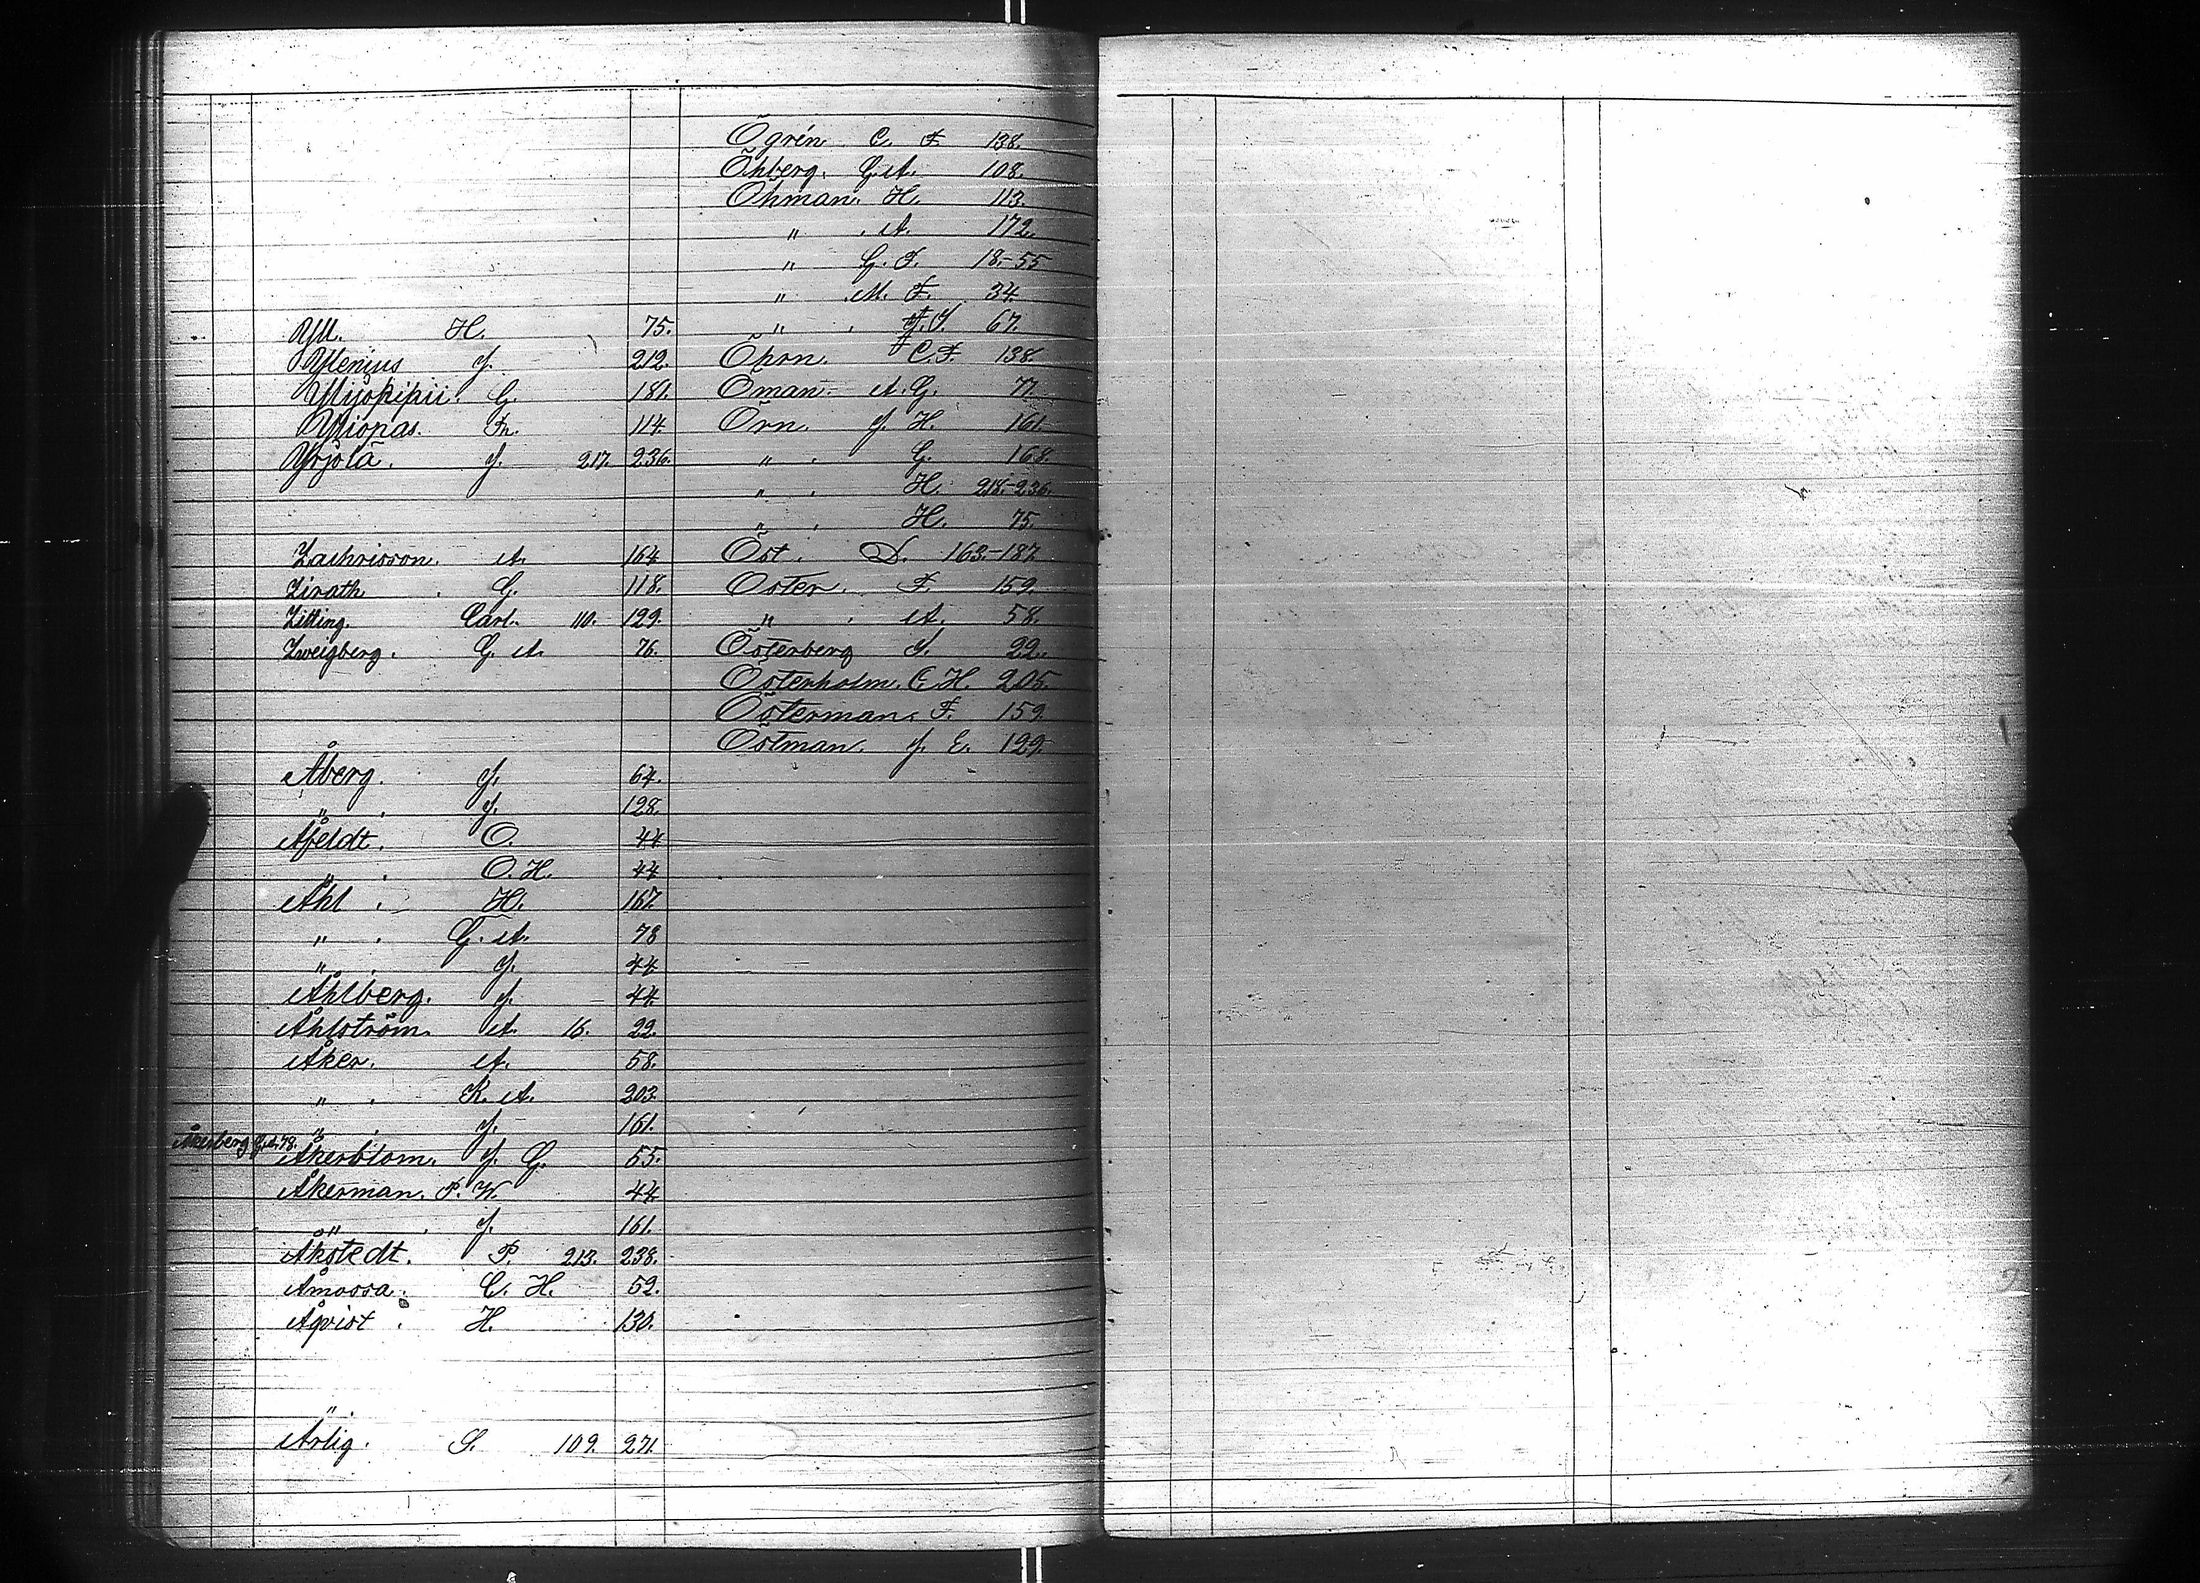 Yll. H. 75.
Ylenius J. 212.
G. 181.
114.
Yrjölä. J. 217. 236.
Zachrisson. A. 164
Zirath. G. 118.
Zitting. Carl. 110. 129.
Zweigberg. G. A. 76.
Åberg. J. 64.
" . J. 128.
Åfeldt. O. 44
" . O. H. 44
Åhl . H. 167.
" . G. A. 78
" . J. 44
Åhlberg. J. 44.
Åhlström. A. 16. 22.
Åker. A. 58.
" . K. A. 203.
" . J. 161.
Åkerberg G. A. 78.
Åkerblom. J. G. 55.
Åkerman. P. W. 44
" . J. 161.
Åkstedt. P. 213. 238.
Åmossa. C. H. 52.
Åqvist . H. 130.
Ärlig. S. 109. 271.
Ögrén C. F. 138.
Öhberg. G. A. 108.
Öhman. H. 113.
" . A. 172.
" G. F. 18.-55
" . M. F. 34.
" . 67.
Öhrn. C. F. 138.
Öman. A. G. 77.
Örn. J. H. 161.
" . G. 168.
" . H. 218.-236.
" . H. 75.
Öst . D. 163.-187.
Öster . F. 159.
" . A. 58.
Österberg J. 22.
Österholm. C. H. 205.
Österman. F. 159.
Östman. J. E. 129.